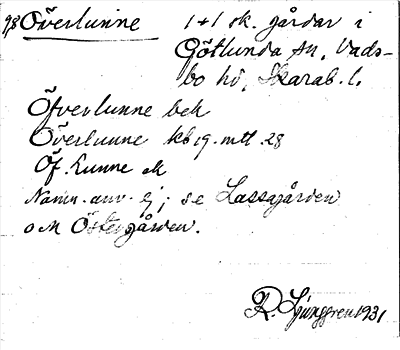 93 Överlunne 1+1 sk. gårdar i
Götlunda sn, Vads-
bo hd, Skarab. l.
Öfverlunne bek
Överlunne kb 19. mtl .28
Öf. Lunne ek
Namn. anv. ej; se Lassagården
och Östergården.
R. Ljunggren 1931